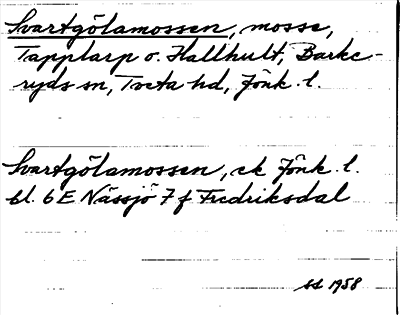 Svartgölamossen, mosse,
Tapptarp o. Hallhult, Barke-
ryds sn, Tveta hd, Jönk. l.
Svartgölamossen, ek Jönk. l.
bl. 6 E Nässjö 7 f Fredriksdal
1958